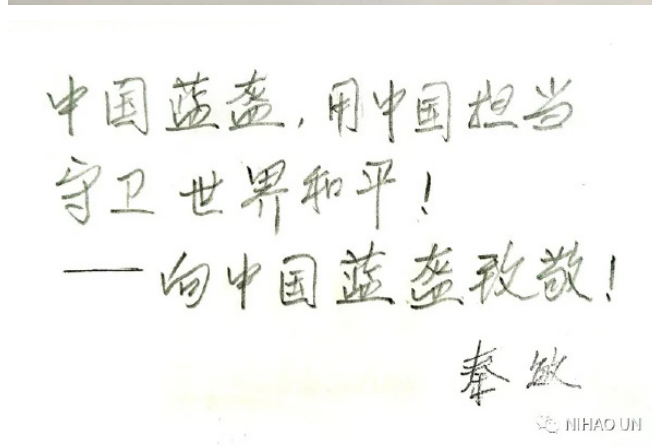 中国蓝盔，用中国担当
守卫世界和平！
——向中国蓝盔致敬！
秦敏
NIHAO UN